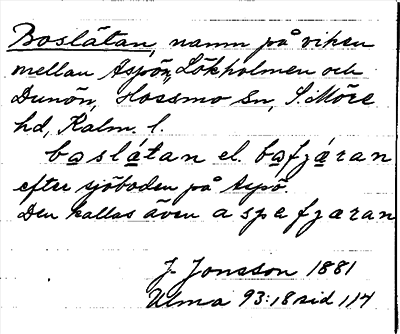 Boslåtan, namn på viken
mellan Aspön, Lökholmen och
Dunön, Hossmo sn, S. Möre
hd, Kalm. l.
baslátan el. bafjæran
efter sjöboden på Aspö.
Den kallas även aspefjæran
J. Jonsson 1881
Ulma 93:18 sid 114